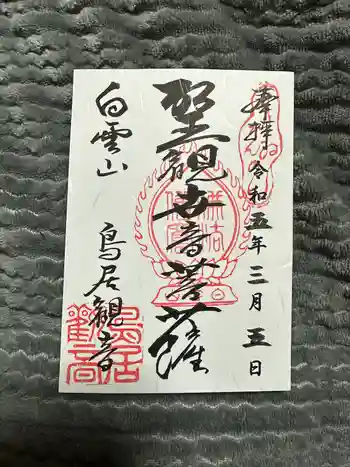 奉拝 令和五年三月五日
聖観世音菩薩
白雲山 鳥居観音